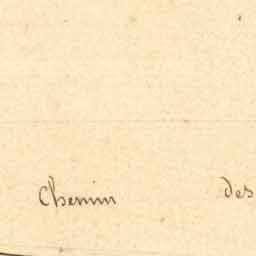 Chemin des